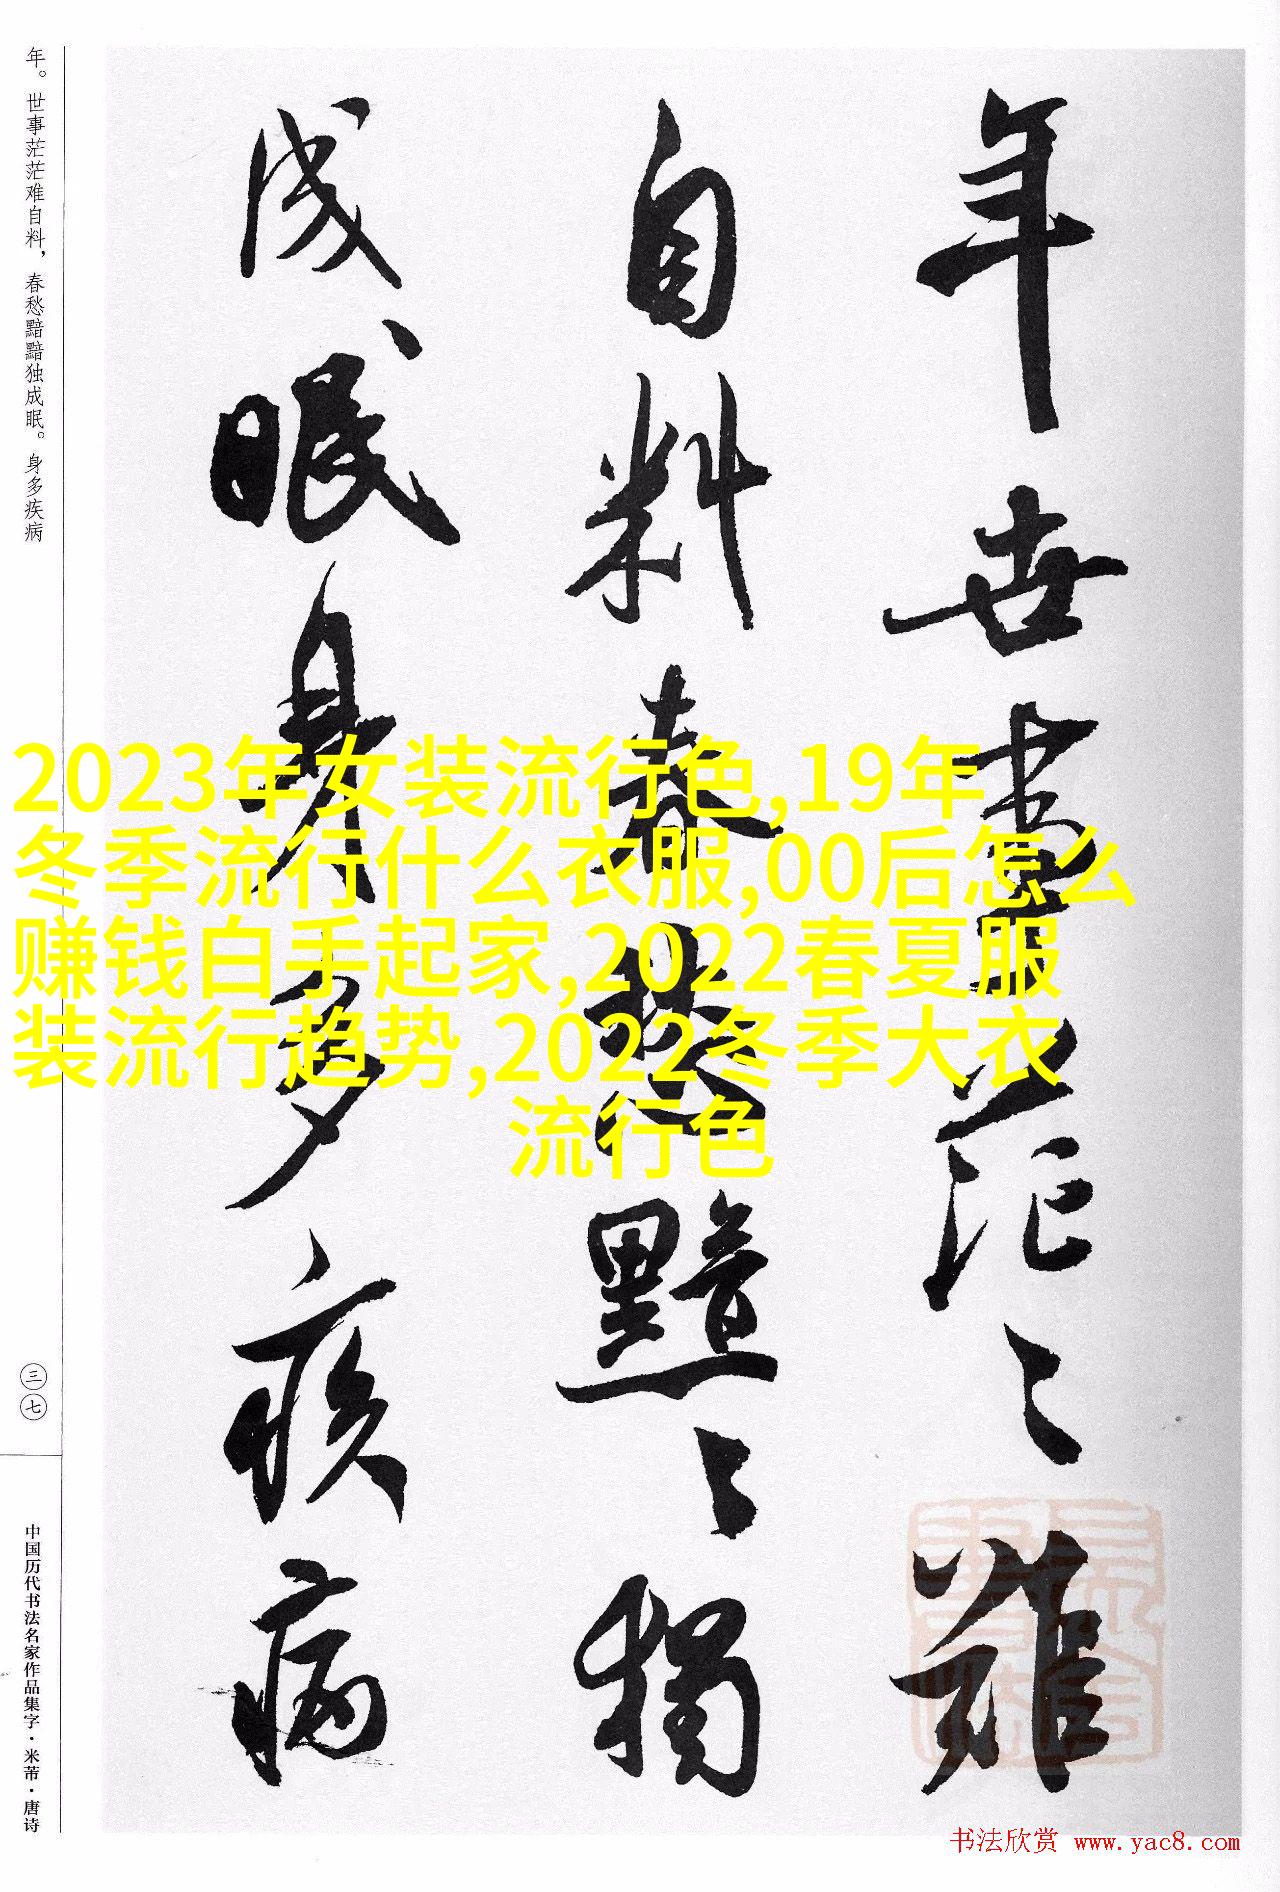 年世事茫〻難
自料春愁黯〻獨
成眠身多疾病
年。世事茫茫难自料，春愁黯黯独成眠。身多疾病
三七
中国历代书法名家作品集字·米芾·唐诗
2023年女装流行色,19年
冬季流行什么衣服,00后怎么
赚钱白手起家,2022春夏服
装流行趋势,2022冬季大衣
流行色
书法欣赏 www.yac8.com